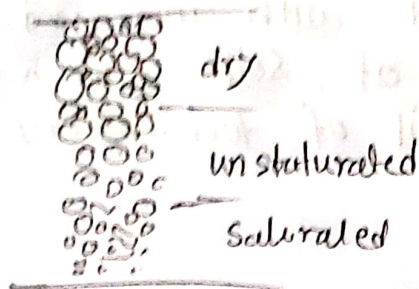 dry
unstaturated
Saturated